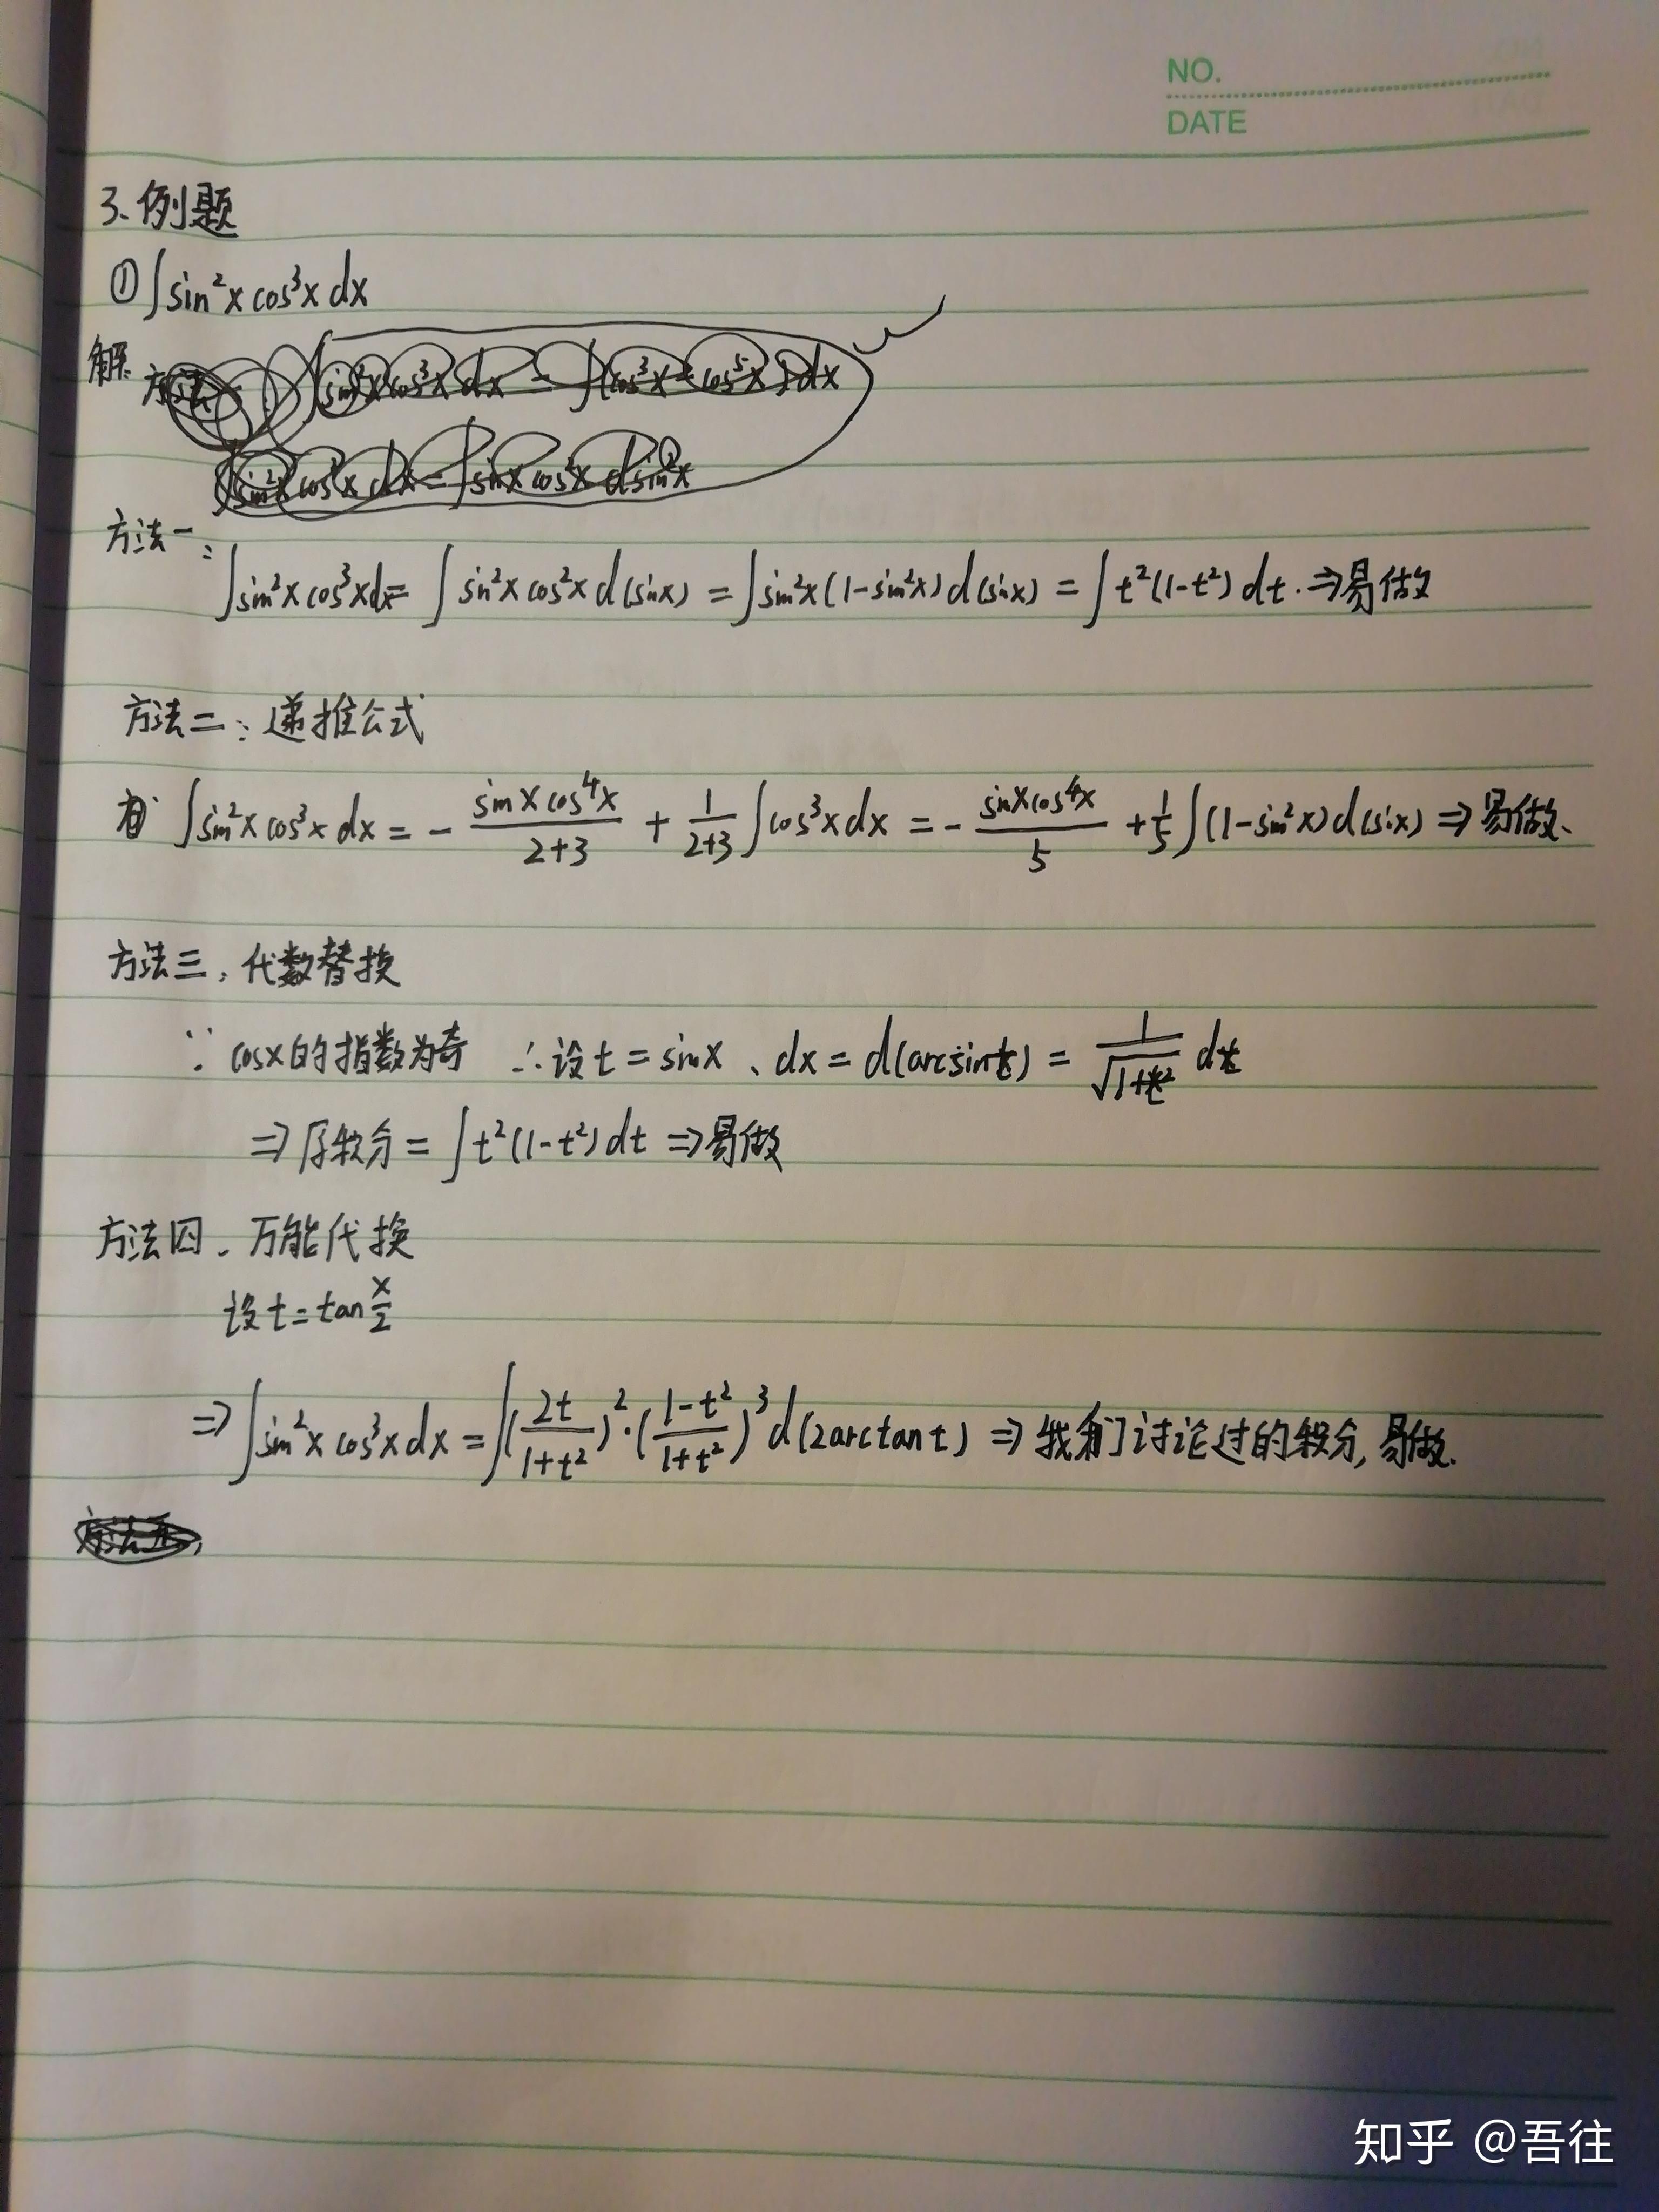 NO.
DATE
3. 例题
① ∫sin²x cos³x dx
解:
方法一:
∫sin²x cos³x dx = ∫ sin²x cos²x d(sinx) = ∫sin²x (1-sin²x) d(sinx) = ∫ t²(1-t²) dt. ⇒易做
方法二: 递推公式
有 ∫sin²x cos³x dx = - \frac{sinx cos⁴x}{2+3} + \frac{1}{2+3} ∫cos³x dx = - \frac{sinx cos⁴x}{5} + \frac{1}{5} ∫(1-sin²x) d(sinx) ⇒ 易做.
方法三, 代数替换
∵ cosx的指数为奇 ∴设 t = sinx、dx = d(arcsint) = \frac{1}{\sqrt{1+t²}} dt
⇒ 原积分 = ∫t²(1-t²) dt ⇒易做
方法四. 万能代换
设 t = tan\frac{x}{2}
⇒ ∫sin²x cos³x dx = ∫(\frac{2t}{1+t²})²·(\frac{1-t²}{1+t²})³ d(2arctan t) ⇒ 我们讨论过的积分, 易做.
知乎 @吾往